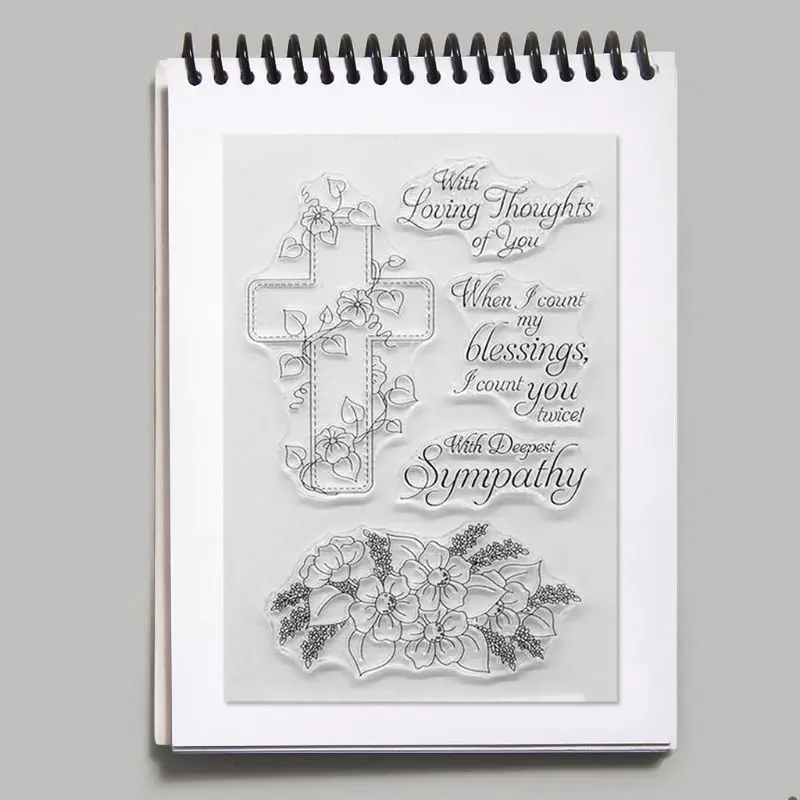 With
Loving Thoughts
of You
When I count
my
blessings,
I count you
twice!
With Deepest
Sympathy